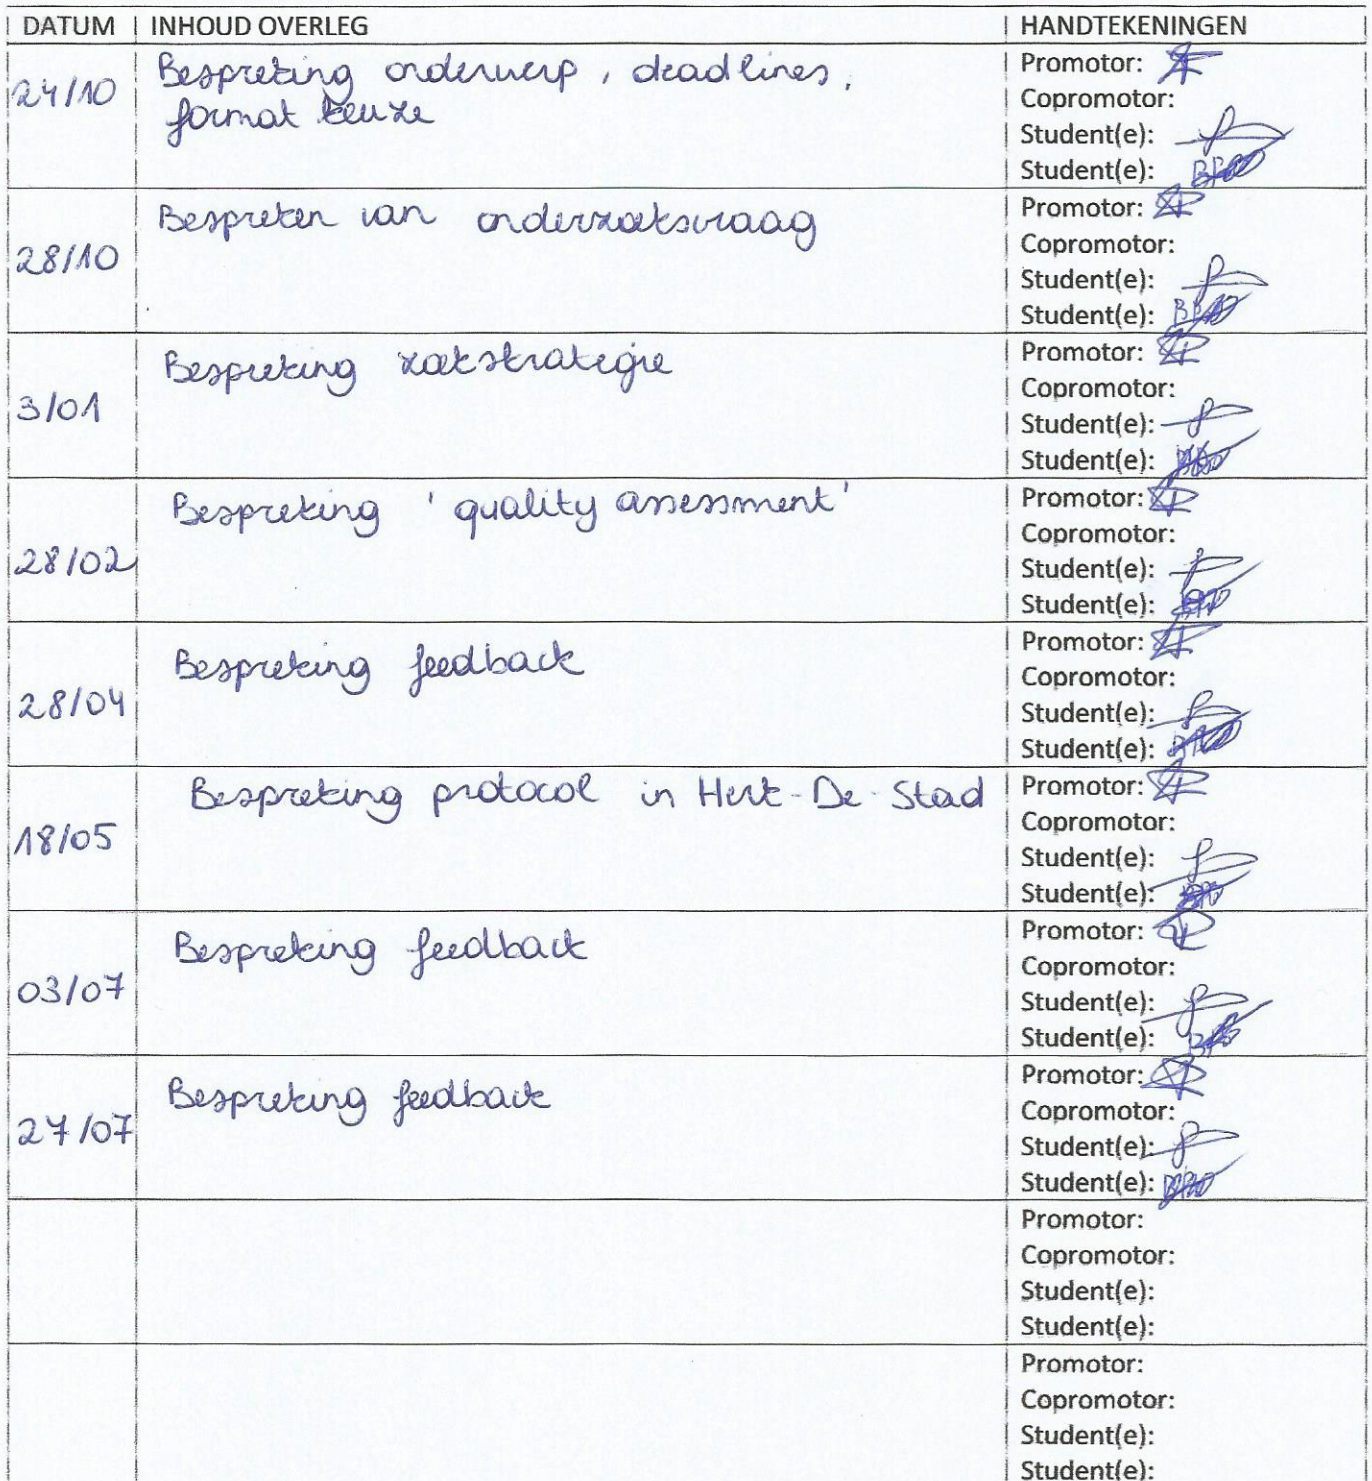 DATUM INHOUD OVERLEG HANDTEKENINGEN
24/10
Bespreking onderwerp, deadlines,
format keuze
Promotor:
Copromotor:
Student(e):
Student(e):
28/10
Bespreken van onderzoeksvraag
Promotor:
Copromotor:
Student(e):
Student(e):
3/01
Bespreking zoekstrategie
Promotor:
Copromotor:
Student(e):
Student(e):
28/02
Bespreking 'quality assessment'
Promotor:
Copromotor:
Student(e):
Student(e):
28/04
Bespreking feedback
Promotor:
Copromotor:
Student(e):
Student(e):
18/05
Bespreking protocol in Herk-De-Stad
Promotor:
Copromotor:
Student(e):
Student(e):
03/07
Bespreking feedback
Promotor:
Copromotor:
Student(e):
Student(e):
27/07
Bespreking feedback
Promotor:
Copromotor:
Student(e):
Student(e):
Promotor:
Copromotor:
Student(e):
Student(e):
Promotor:
Copromotor:
Student(e):
Student(e):